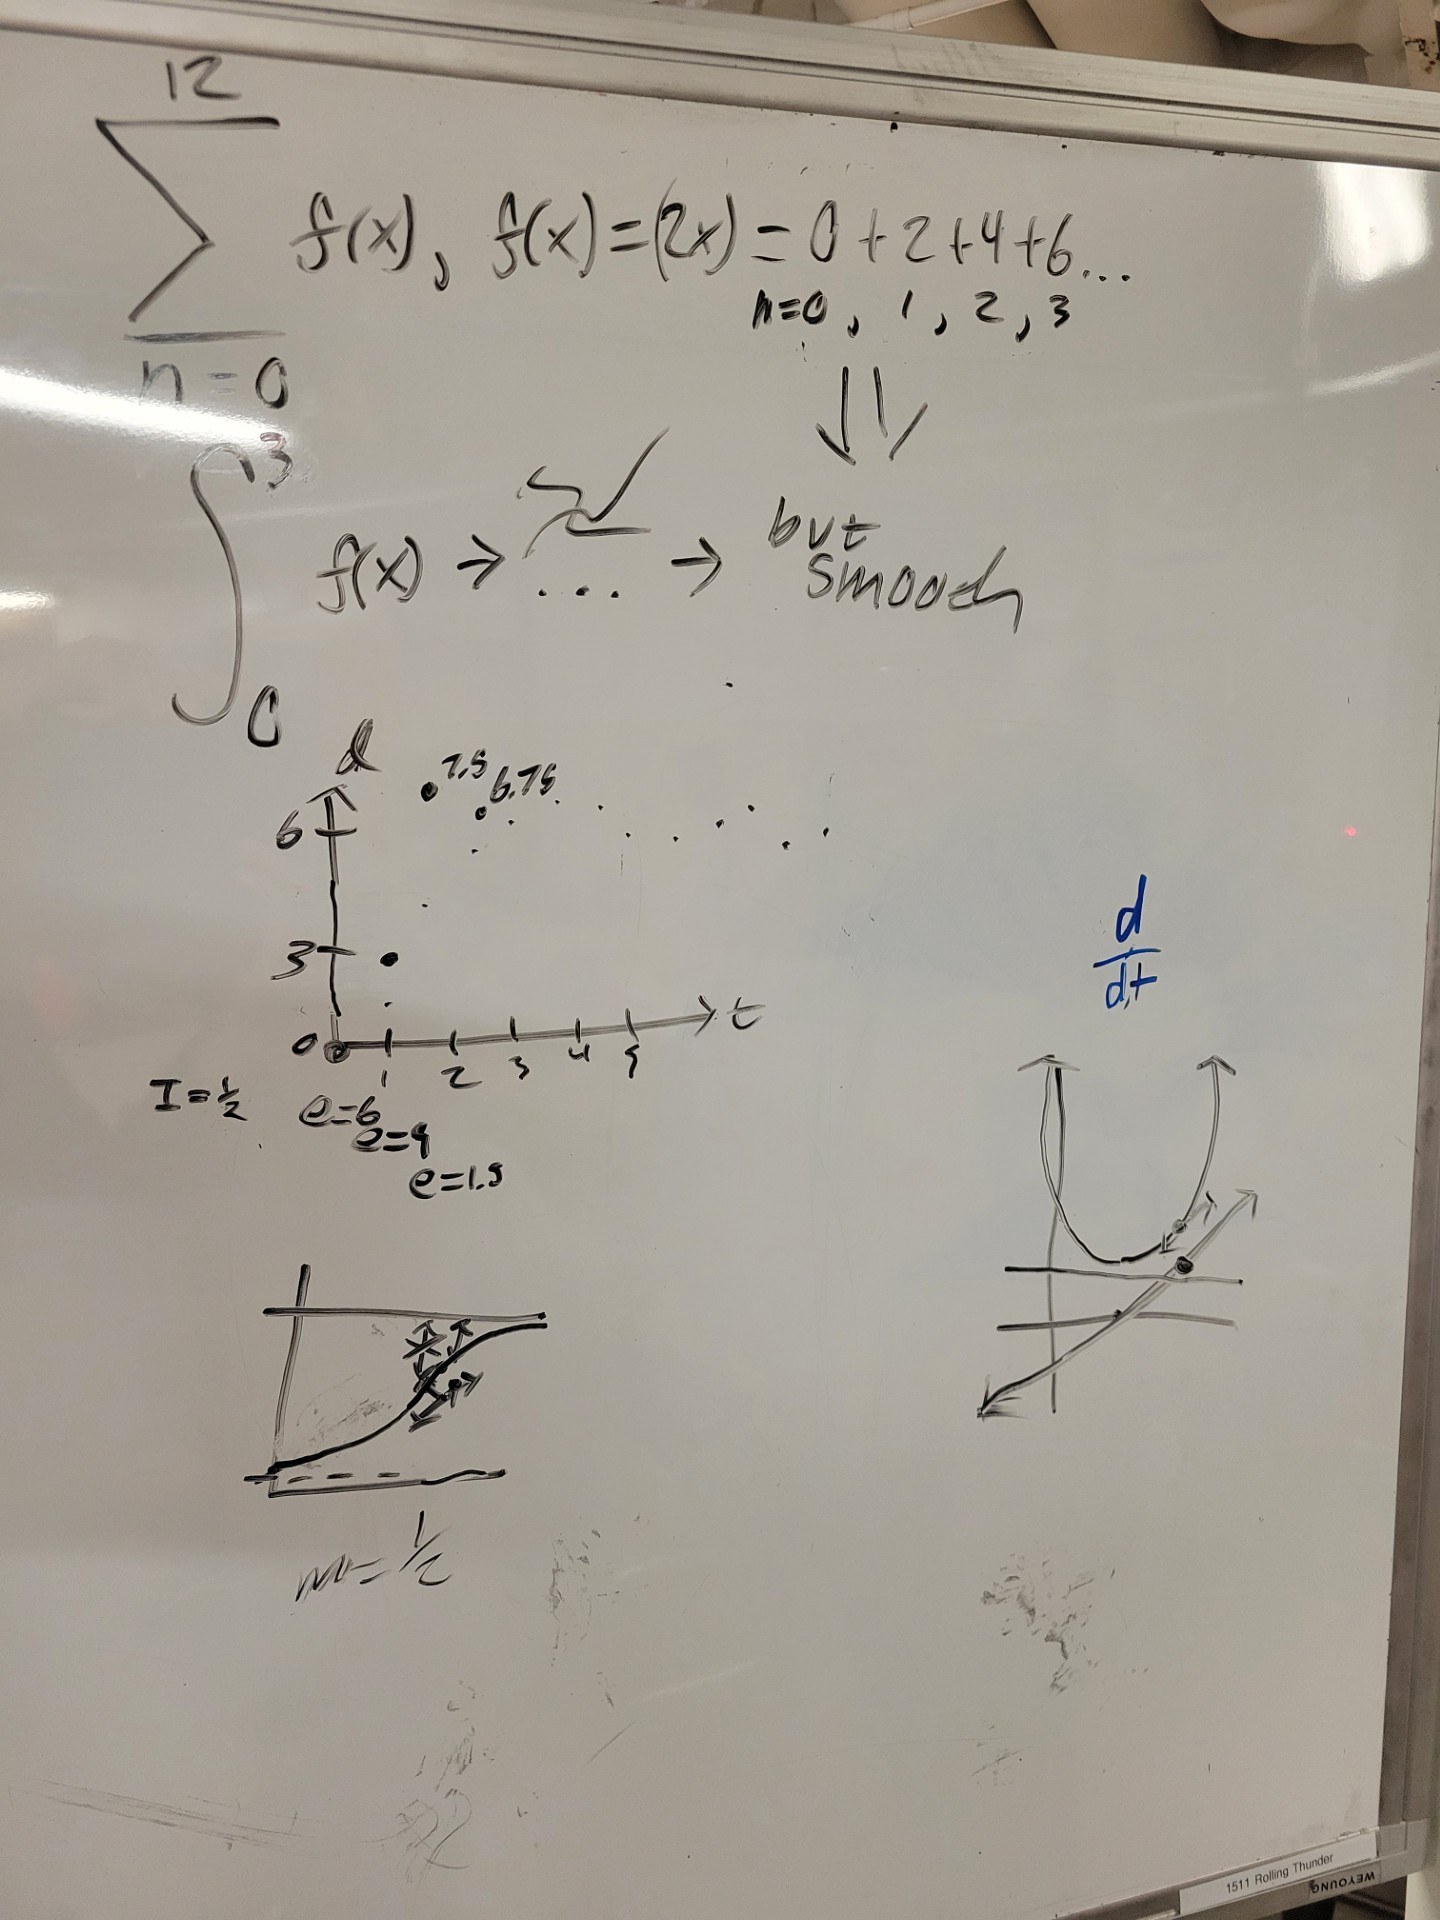 12
∑ f(x), f(x)=(2x)=0+2+4+6...
n=0
n=0, 1, 2, 3
3
∫ f(x) → .... → but smooth
0
d
7.5 6.75
6
3
0
t
1 2 3 4 5
I=½
e=6
e=4
e=1.5
d
dt
m=½
1511 Rolling Thunder
WEYOUNG